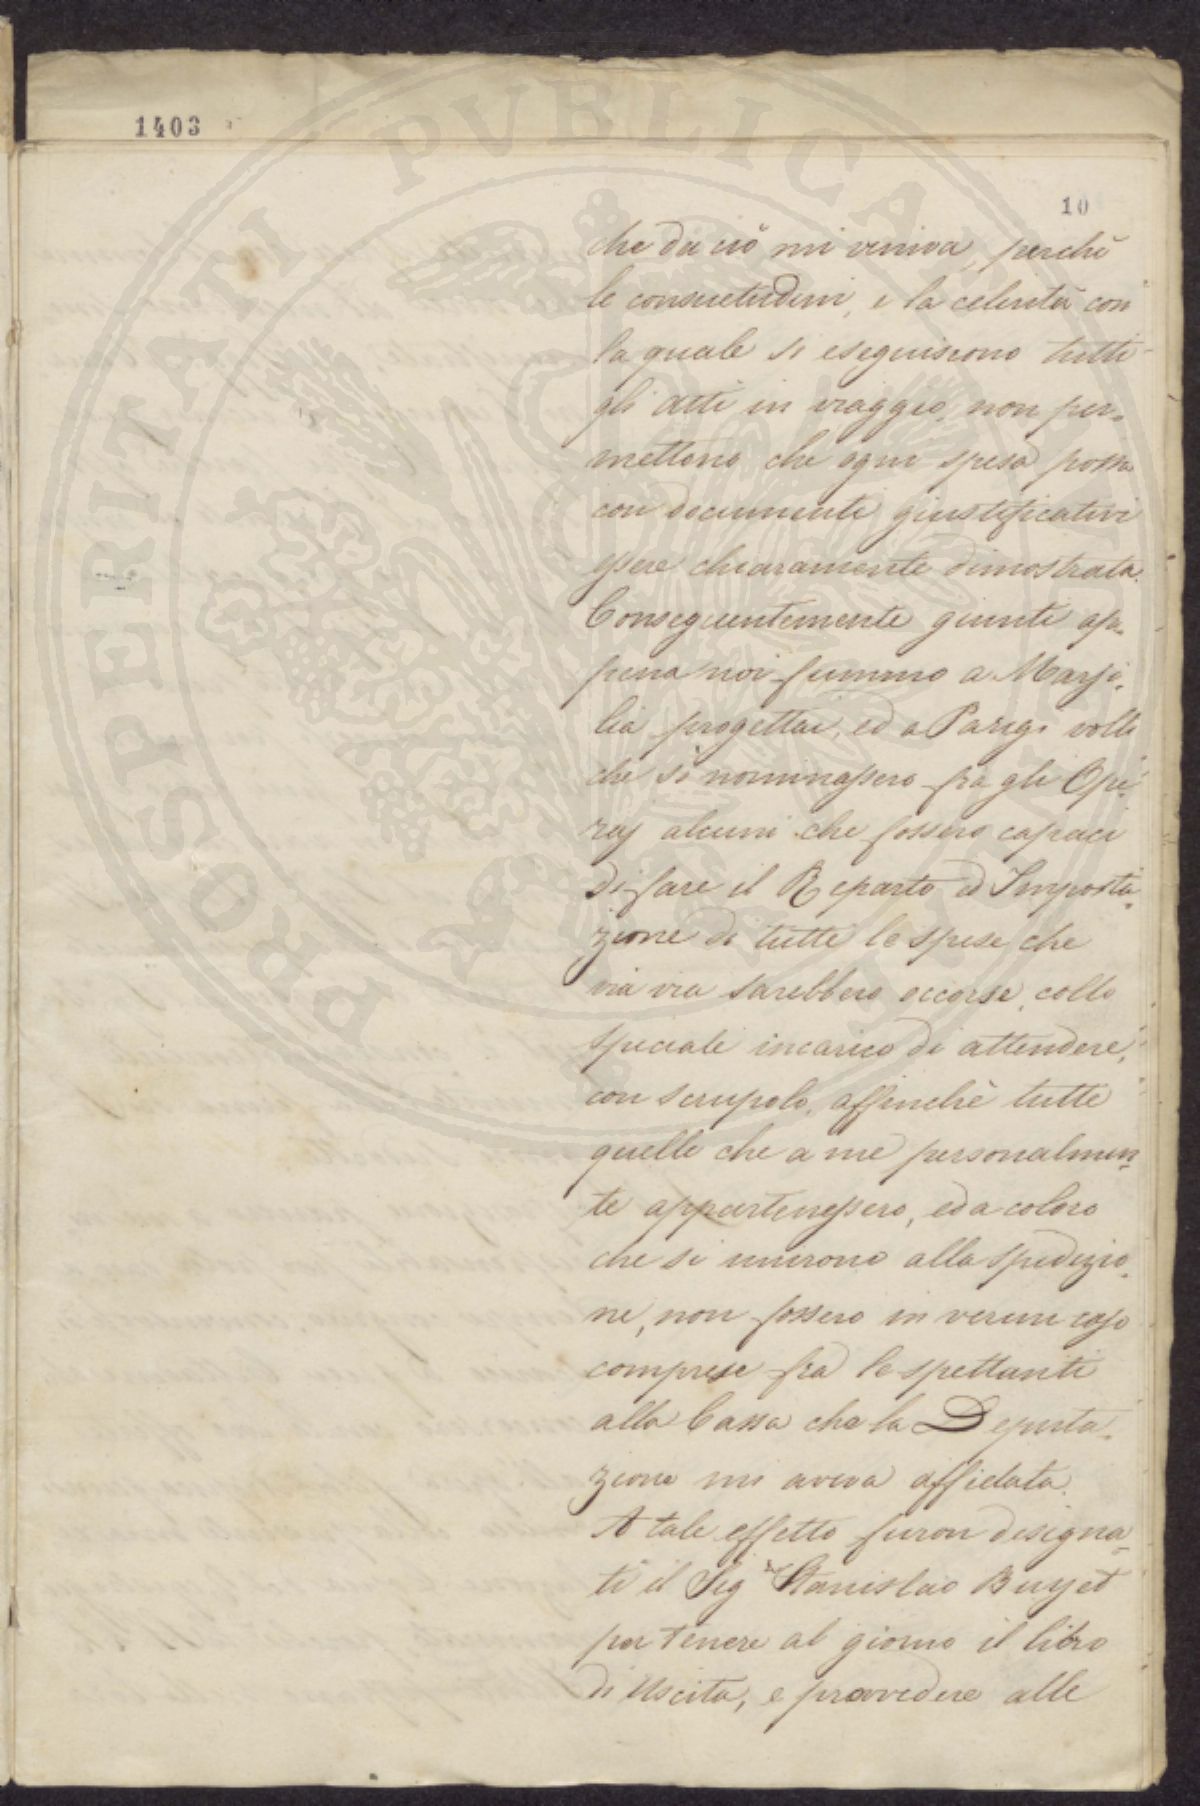 1403
10
che da ciò mi veniva, perchè
le consuetudini, e la celerità con
la quale si eseguiscono tutti
gli atti in viaggio, non per-
mettono che ogni spesa possa
con documenti giustificativi
essere chiaramente dimostrata.
Conseguentemente giunti ap-
pena noi fummo a Marsi-
lia progettai, ed a Parigi volli
che si nominassero fra gli Ope-
raj alcuni che fossero capaci
di fare il Reparto ed Imposta-
zione di tutte le spese che
via via sarebbero occorse, collo
speciale incarico di attendere,
con scrupolo, affinchè tutte
quelle che a me personalmen-
te appartenessero, ed a coloro
che si unirono alla spedizio-
ne, non fossero in verun caso
comprese fra le spettanti
alla Cassa che la Deputa-
zione mi aveva affidata.
A tale effetto furon designa-
ti il Sig.r Stanislao Buyet
per tenere al giorno il libro
di Uscita, e provvedere alle
PROSPERITATI PUBLICAE